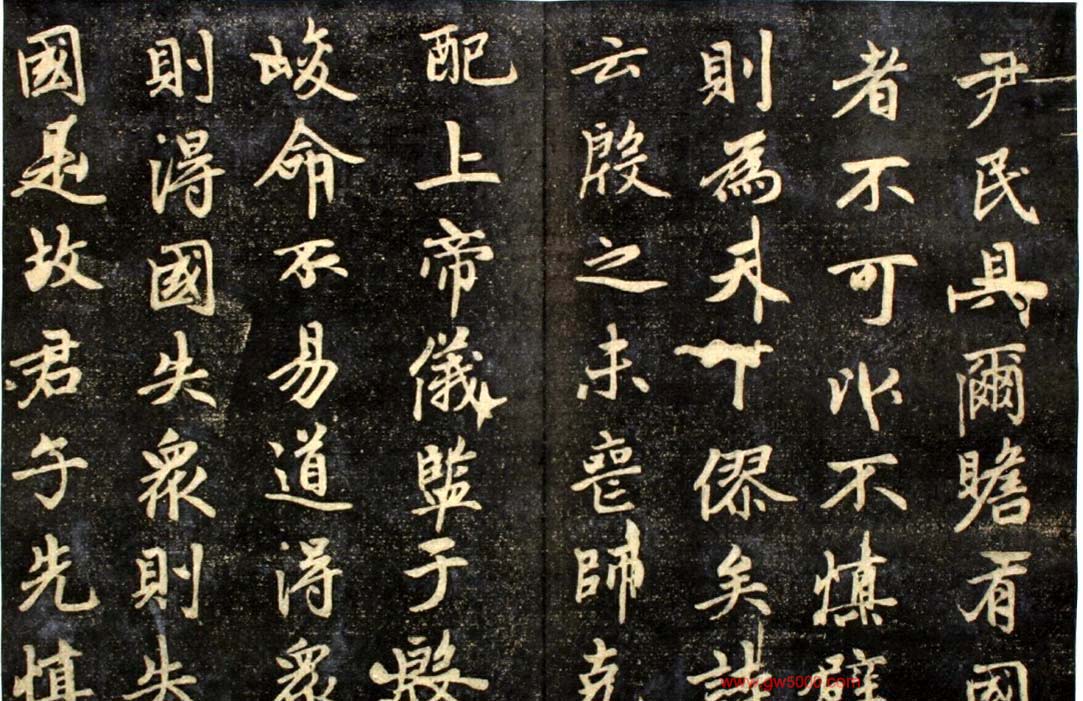 尹民具爾瞻有國
者不可以不慎辟
則為天下僇矣詩
云殷之未喪師克
配上帝儀監于殷
峻命不易道得眾
則得國失眾則失
國是故君子先慎
www.gw5000.com